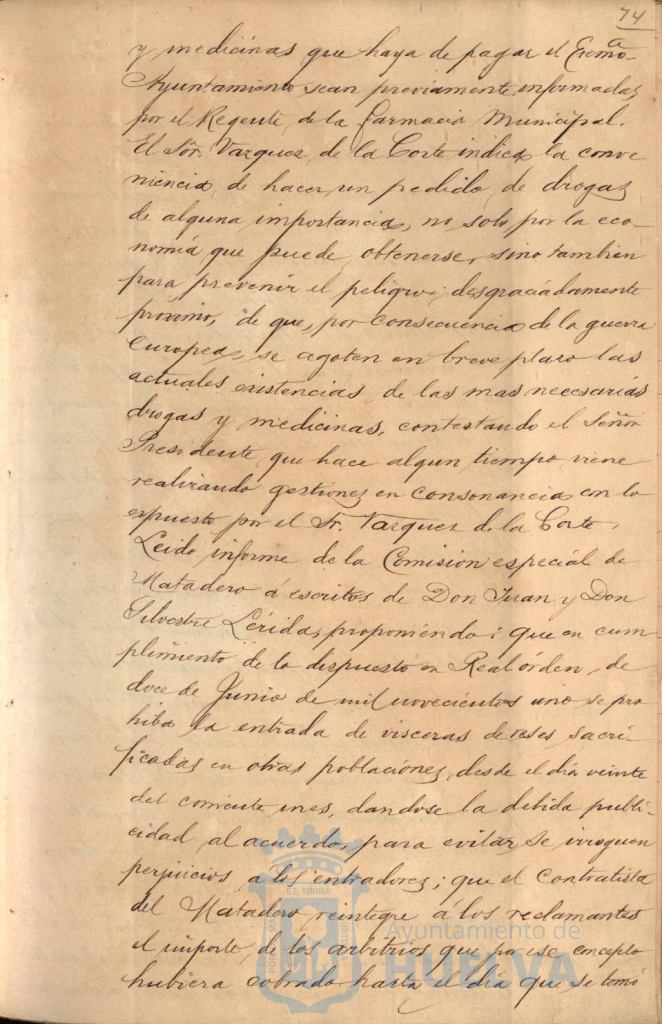 74
y medicinas que haya de pagar el Excmo.
Ayuntamiento sean previamente informadas
por el Regente de la Farmacia Municipal.
El Sor. Vazquez de la Corte indica la conve
niencia de hacer un pedido de drogas
de alguna importancia, no solo por la eco-
nomía que puede obtenerse, sino tambien
para prevenir el peligro; desgraciadamente
próximo, de que, por consecuencia de la guerra
Europea, se agoten en breve plazo las
actuales existencias de las mas necesarias
drogas y medicinas, contestando el Señor
Presidente que hace algun tiempo viene
realizando gestiones en consonancia con lo
expuesto por el Sr. Vazquez de la Corte.
Leido informe de la Comisión especial de
Matadero á escritos de Don Juan y Don
Silvestre Lérida, proponiendo: que en cum
plimiento de lo dispuesto en Real órden de
doce de Junio de mil novecientos uno se pro
hiba la entrada de visceras de reses sacri-
ficadas en otras poblaciones desde el día veinte
del corriente mes, dandose la debida publi-
cidad al acuerdo, para evitar se irroguen
perjuicios á los entradores; que el Contratista
del Matadero reintegre á los reclamantes
el importe de los arbitrios que por ese concepto
hubiera cobrado hasta el día que se tomó
Ayuntamiento de
HUELVA